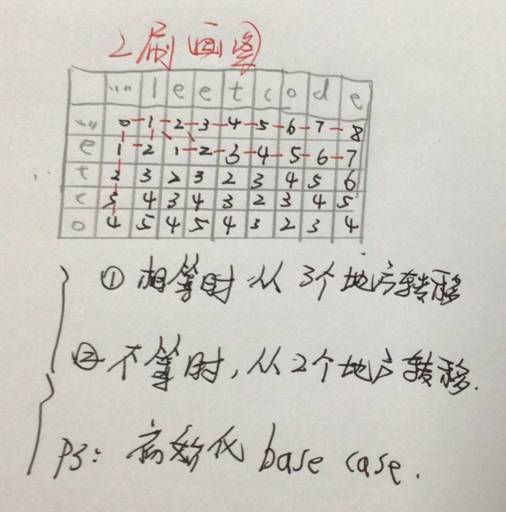 2刷画图
"" l e e t c o d e
"" 0-1-2-3-4-5-6-7-8
e 1-2 1-2-3-4-5-6-7
t 2 3 2 3 2 3 4 5 6
c 3 4 3 4 3 2 3 4 5
o 4 5 4 5 4 3 2 3 4
① 相等时从3个地方转移
② 不等时,从2个地方转移.
PS: 初始化 base case.